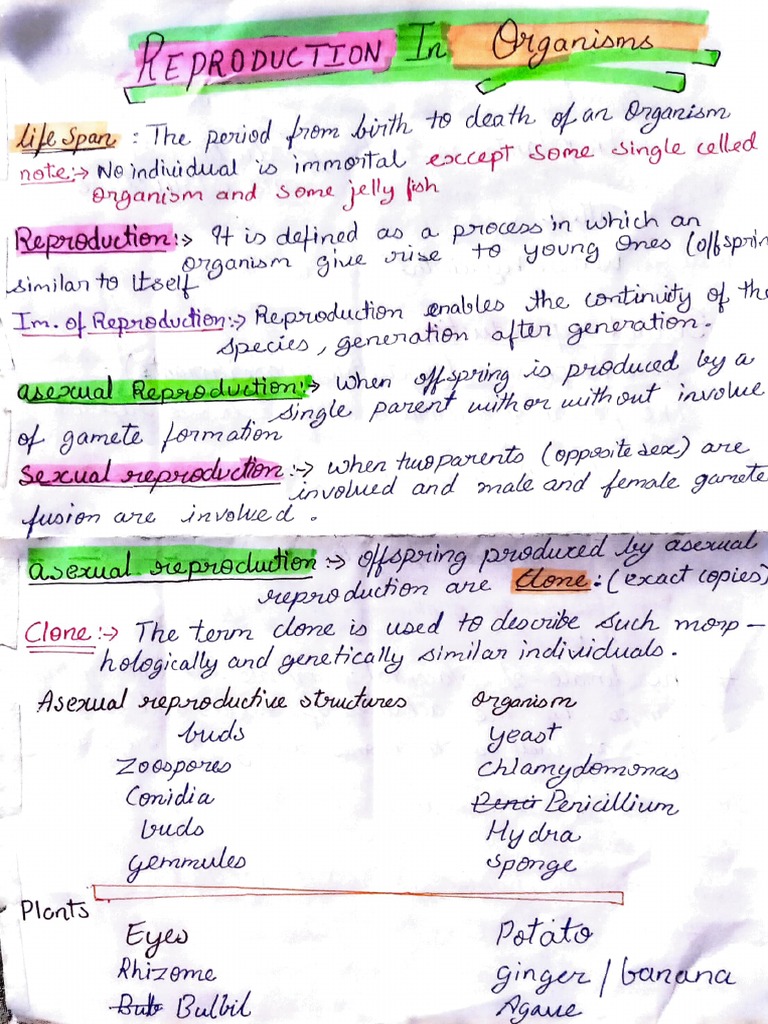 REPRODUCTION In Organisms
Life Span : The period from birth to death of an Organism
note:→ No individual is immortal exccept some single celled
organism and some jelly fish
Reproduction:→ It is defined as a process in which an
organism give rise to young ones (offsprin
similar to itself
Im. of Reproduction:→ Reproduction enables the continuity of the
species, generation after generation.
asexual Reproduction:→ when offspring is produced by a
single parent with or without involve
of gamete formation
Sexual reproduction:→ when two parents (opposite sex) are
involved and male and female gamete
fusion are involved.
asexual reproduction:→ offspring produced by asexual
reproduction are Clone: (exact copies)
Clone:→ The term clone is used to describe such morp-
hologically and genetically similar individuals.
Asexual reproductive structures organism
buds yeast
Zoospores Chlamydomonas
Conidia Penicillium
buds Hydra
gemmules sponge
Plants
Eyes Potato
Rhizome ginger / banana
Bulbil Agave